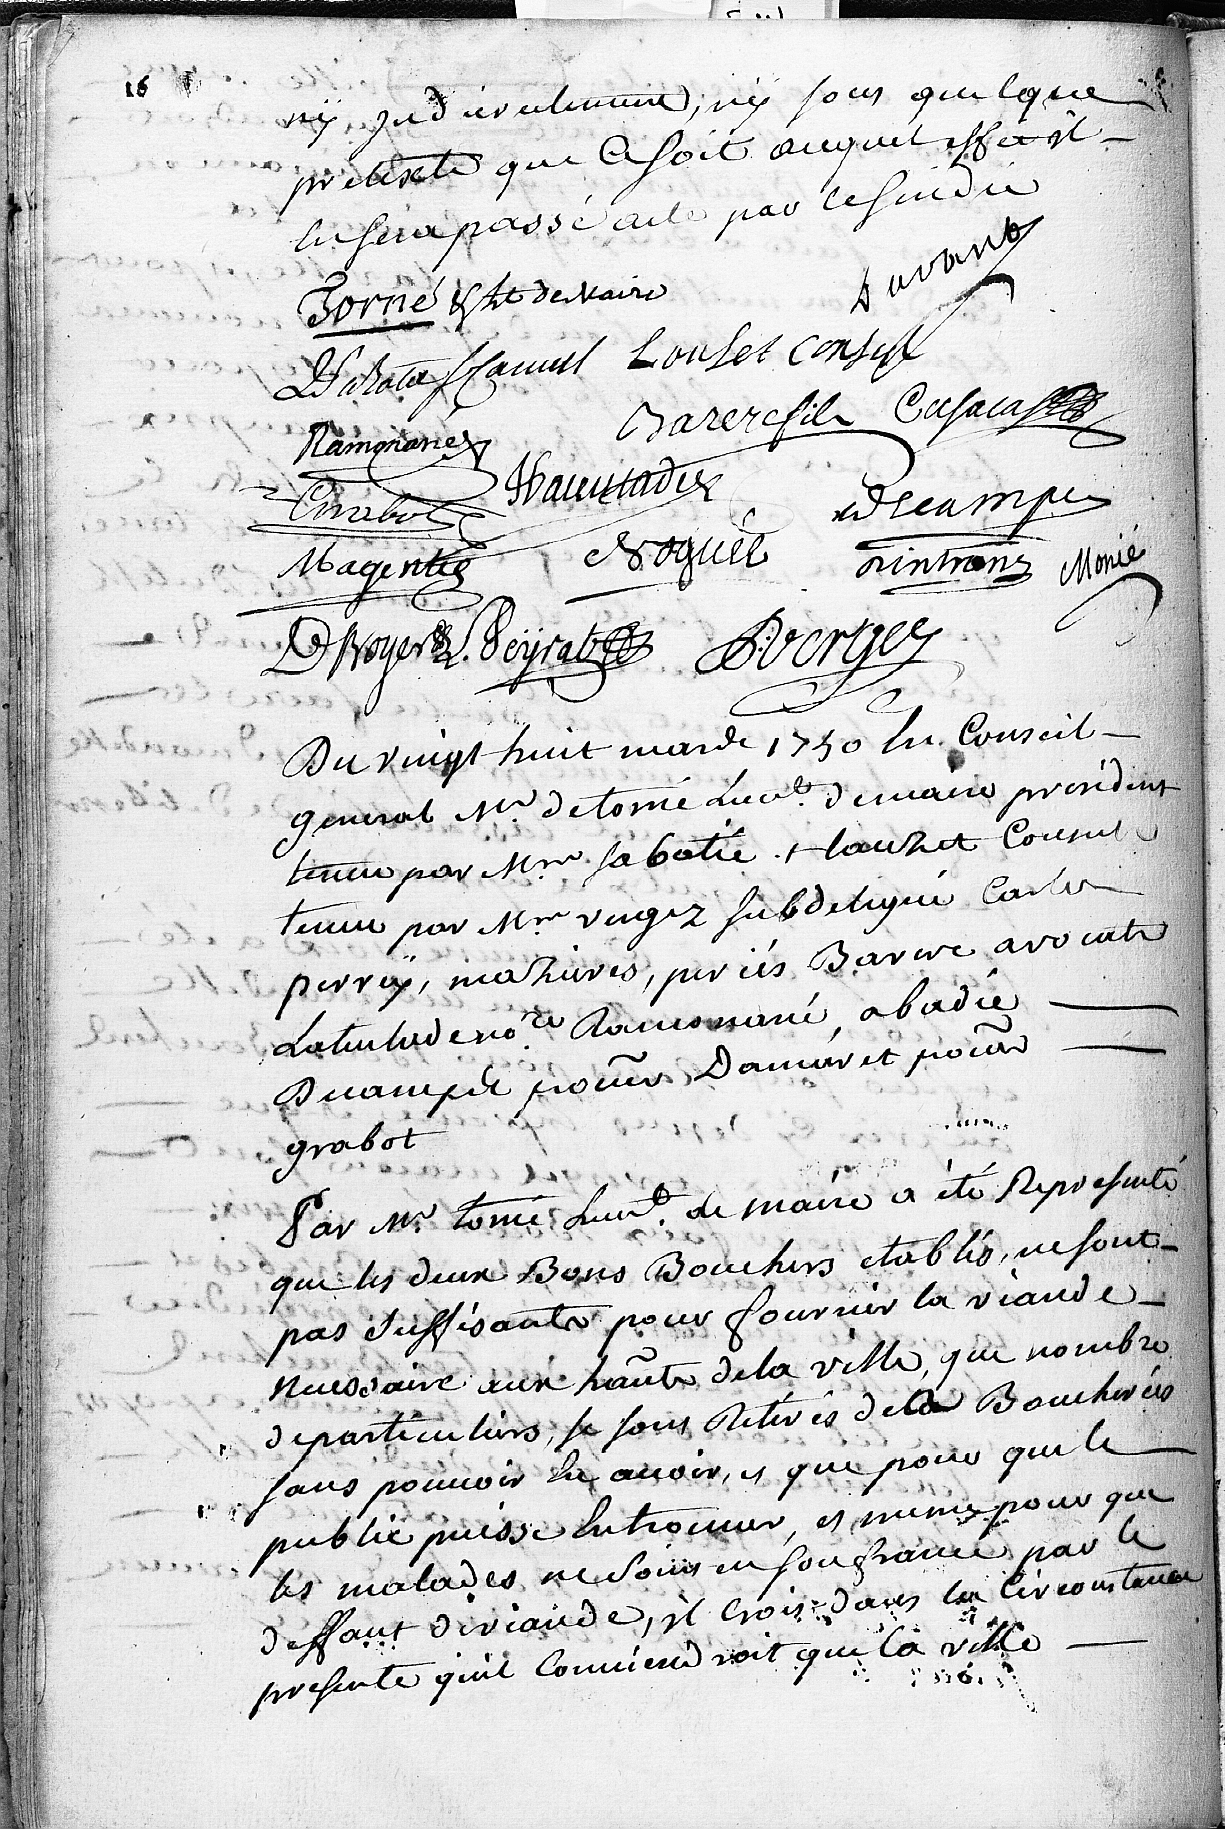 16
ny judiciulemene, ny sous quelque
pretexte que ce soit auquel effet il
en sera passé acte par le sindic
Torné Lieut de maire
Davant
Louset consul
Ramonané
Barere fils
Casaca
Descampe
Magentie
Noguéé
Monié
D Royer
L. Peyrat
D. Verges
Du vingt huit mars de 1750 En Conseil
general Mr. detorné Lieut. demaire président
tenu par Mrs sabatié et louzet Consuls
tenu par Mrs vergez subdelegué Carles
perrey, mazieres, periés Barere avocats
Latentade nore. Ramonané, abadie
Descampe procur Daunivet procur
grabot
Par Mr. torné Lieut. de maire a été Representé
que les deux Bons Bouchers etablis, ne sont
pas suffisants pour fournir la viande
necessaire aux hants dela ville, que nombre
departiculiers, se sons Retirés dela Boucheries
sans pouvoir En avoir, et que pour que le
public puisse En trouver, et meme pour que
les malades ne soins en souffrance par le
deffaut deviande, il crois dans la circonstance
presente quil conviendroit que la ville